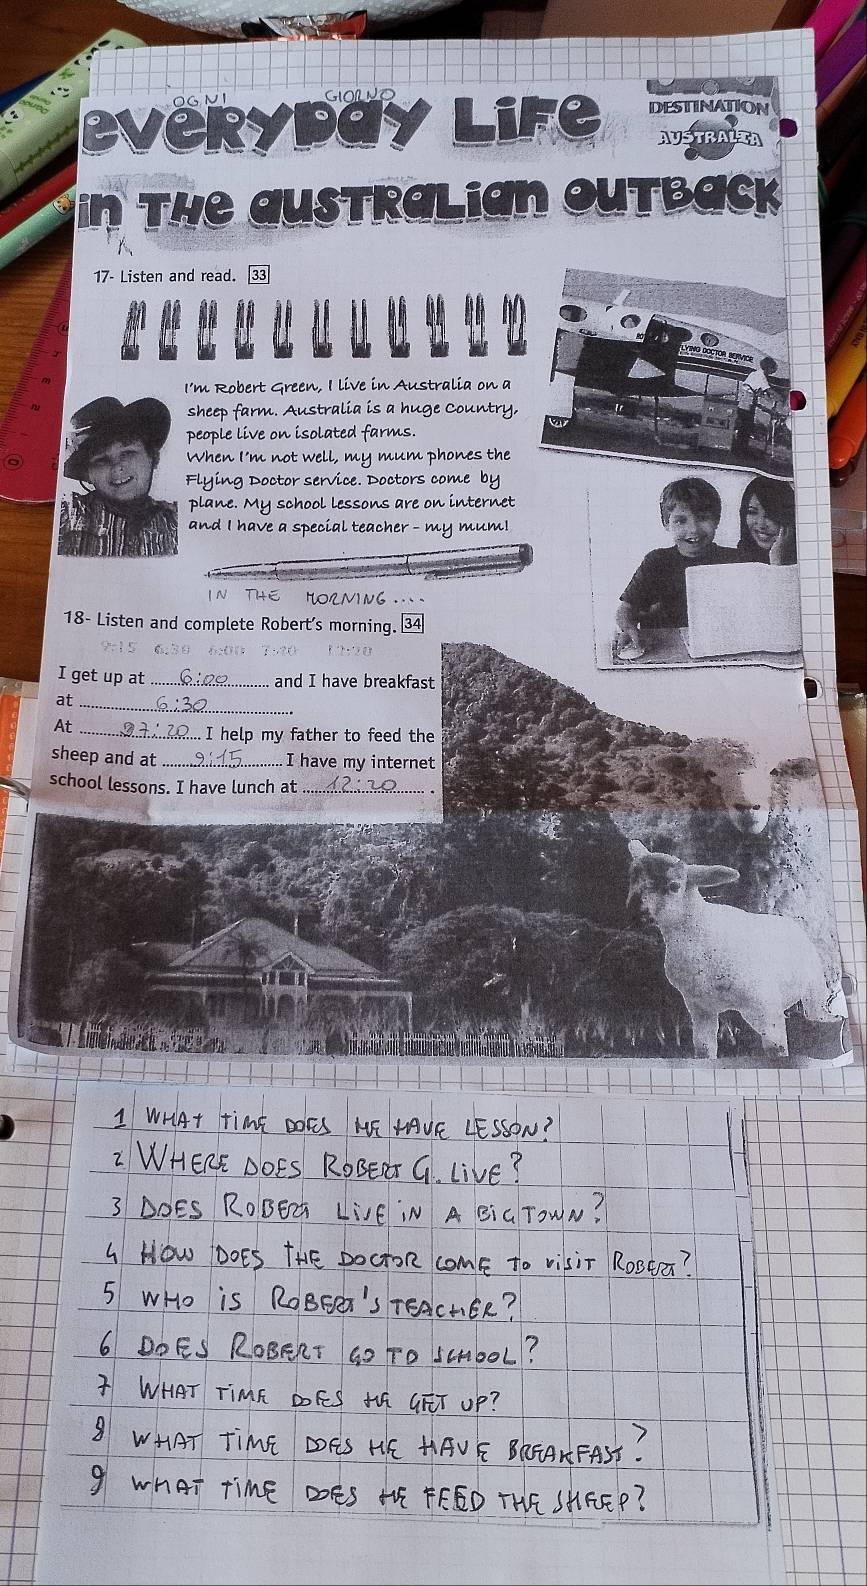 OGNI GIORNO
everyday Life
DESTINATION
AUSTRALIA
in THe australian outback
17- Listen and read. 33
I'm Robert Green, I live in Australia on a
sheep farm. Australia is a huge country,
people live on isolated farms.
When I'm not well, my mum phones the
Flying Doctor service. Doctors come by
plane. My school lessons are on internet
and I have a special teacher - my mum!
LYING DOCTOR SERVICE
IN THE MORNING....
18- Listen and complete Robert's morning. 34
9:15 6:30 6:00 7:20 12:20
I get up at 6:00 and I have breakfast
at 6:30.
At 7:20 I help my father to feed the
sheep and at 9:15 I have my internet
school lessons. I have lunch at 12:20.
1 WHAT TIME DOES HE HAVE LESSON?
2 WHERE DOES ROBERT G. LIVE?
3 DOES ROBERT LIVE IN A BIG TOWN?
4 HOW DOES THE DOCTOR COME TO VISIT ROBERT?
5 WHO IS ROBERT'S TEACHER?
6 DOES ROBERT GO TO SCHOOL?
7 WHAT TIME DOES HE GET UP?
8 WHAT TIME DOES HE HAVE BREAKFAST?
9 WHAT TIME DOES HE FEED THE SHEEP?